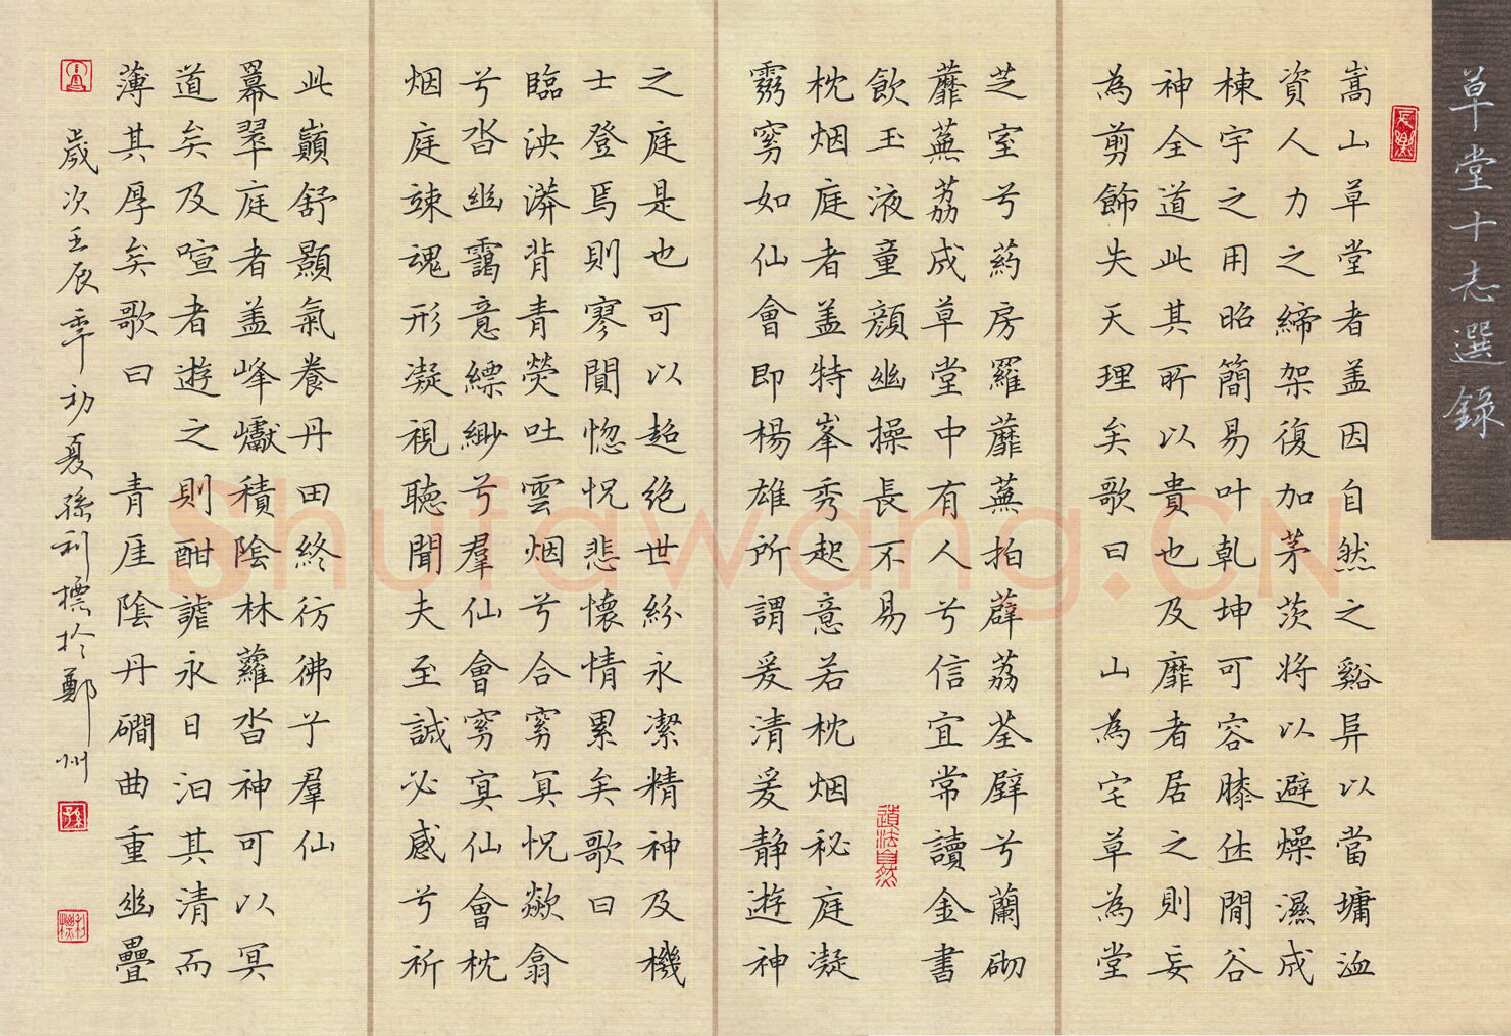 草堂十志選錄
嵩山草堂者盖因自然之谿阜以當墉洫
資人力之締架復加茅茨將以避燥濕成
棟宇之用昭簡易叶乹坤可容膝休閒谷
神全道此其所以貴也及靡者居之則妄
為剪飾失天理矣歌曰 山為宅草為堂
芝室兮葯房羅蘼蕪拍薜荔荃壁兮蘭砌
蘼蕪荔成草堂中有人兮信宜常讀金書
飲玉液童顏幽操長不易
道法自然
枕烟庭者盖特峯秀起意若枕烟秘庭凝
霧窈如仙會即楊雄所謂爰清爰靜遊神
之庭是也可以超绝世紛永潔精神及機
士登焉則寥闃惚怳悲懷情累矣歌曰
臨泱漭背青熒吐雲烟兮合窈冥怳欻翕
兮沓幽靄意縹緲兮羣仙會窈冥仙會枕
烟庭竦魂形凝視聽聞夫至誠必感兮祈
此巔舒顥氣養丹田終彷彿兮羣仙
羃翠庭者盖峰巘積陰林蘿沓神可以冥
道矣及喧者遊之則酣謔永日汩其清而
薄其厚矣歌曰 青厓陰丹磵曲重幽疊
歲次壬辰年初夏孫利標於鄭州
Shufawang.CN